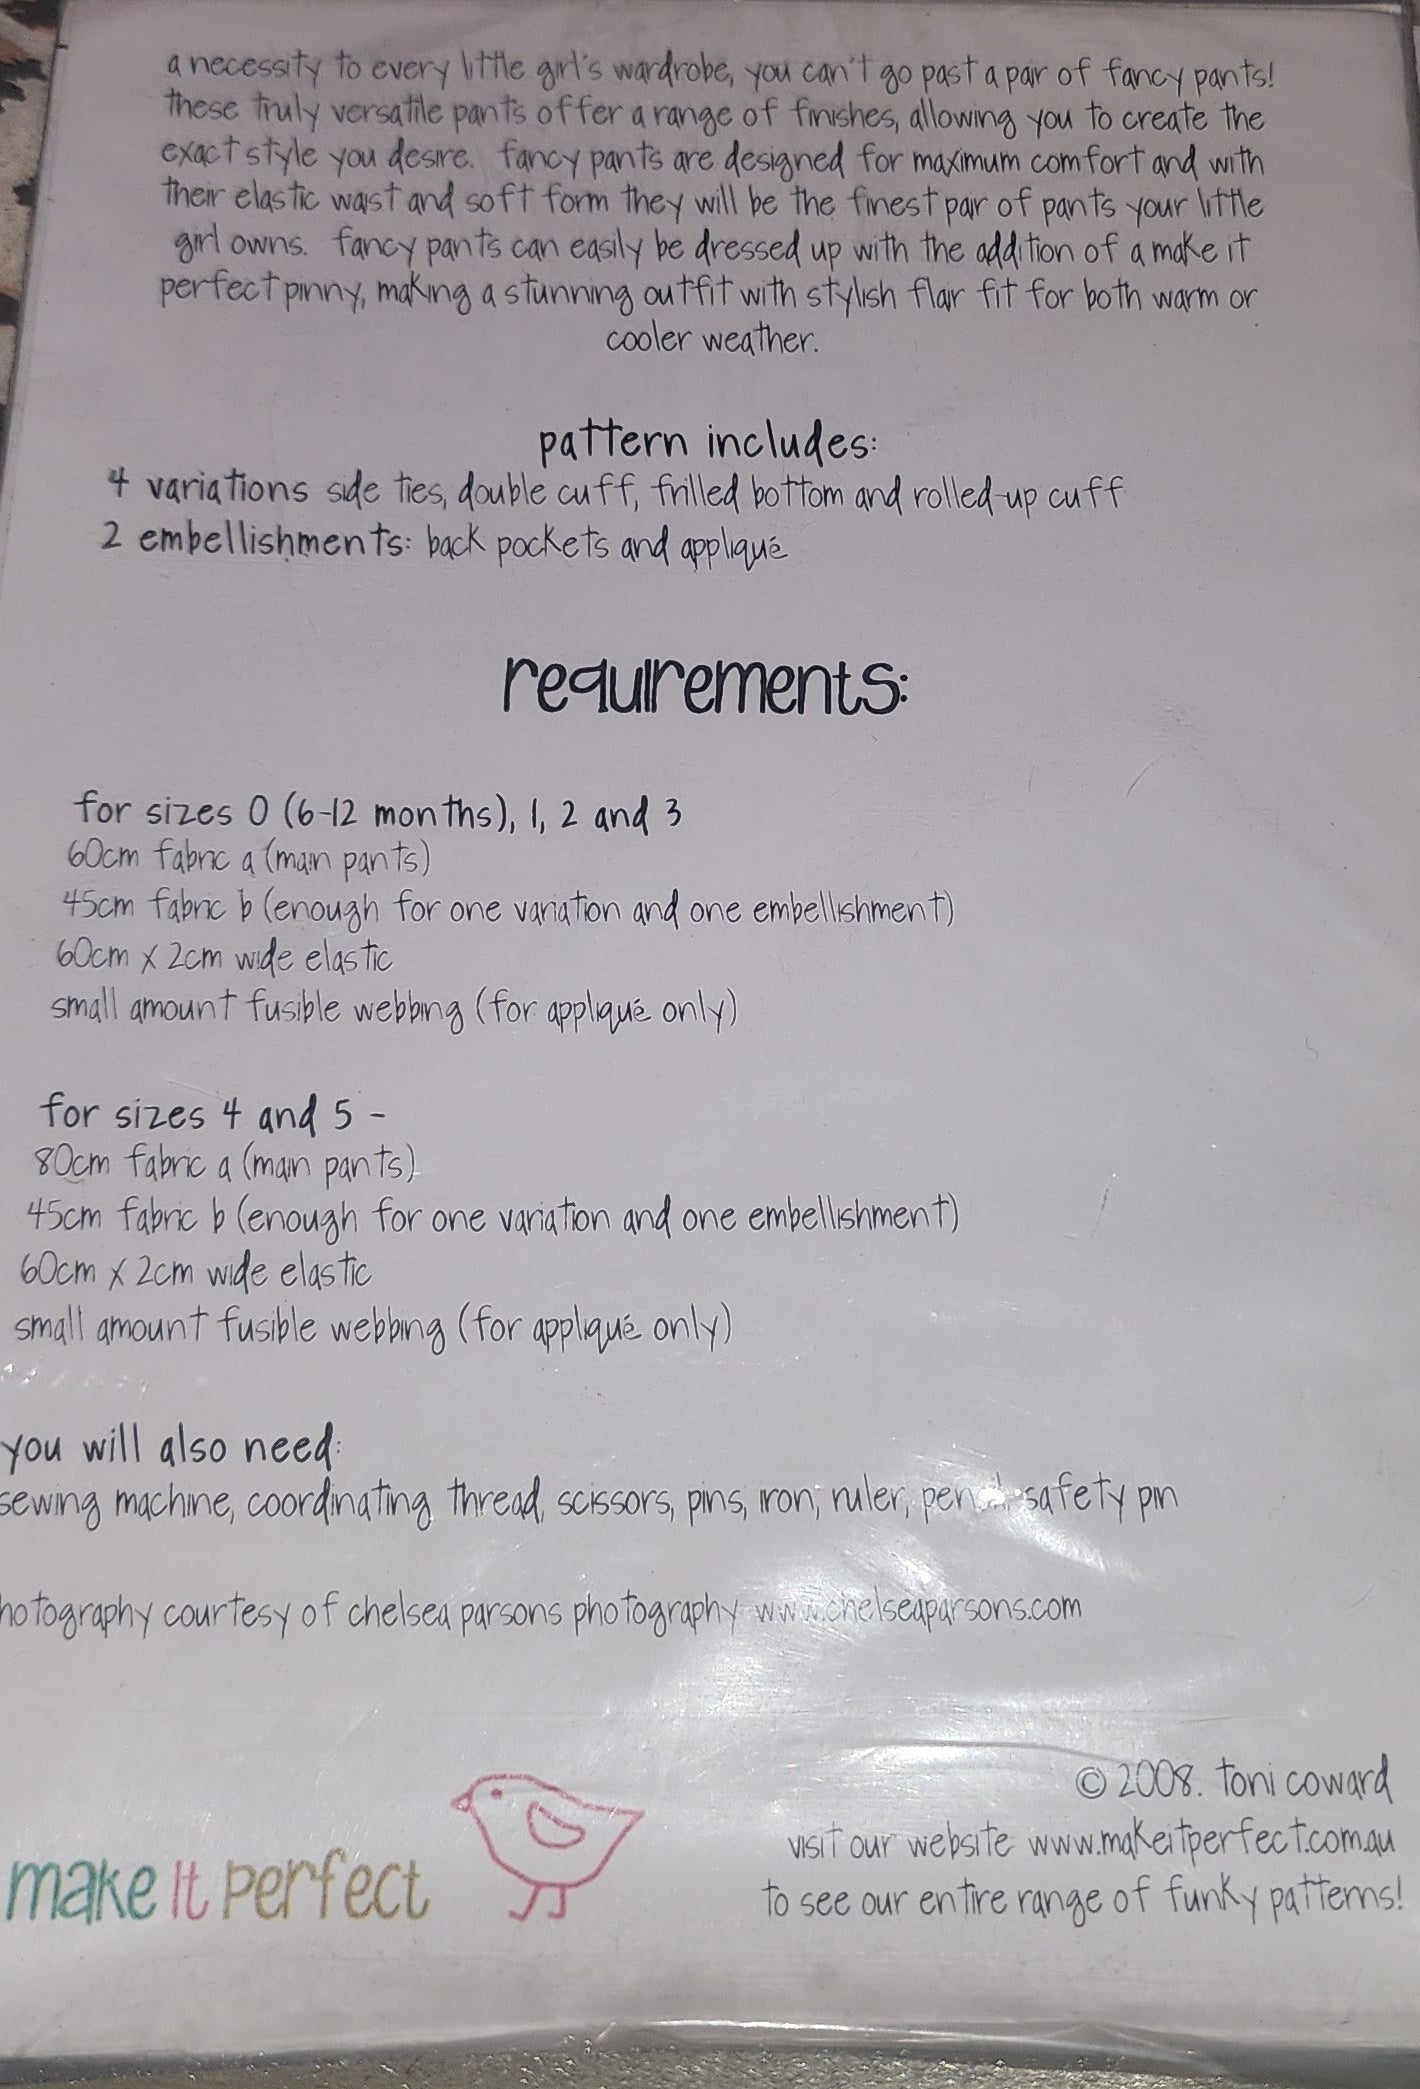 a necessity to every little girl's wardrobe, you can't go past a pair of fancy pants!
these truly versatile pants offer a range of finishes, allowing you to create the
exact style you desire. fancy pants are designed for maximum comfort and with
their elastic waist and soft form they will be the finest pair of pants your little
girl owns. fancy pants can easily be dressed up with the addition of a make it
perfect pinny, making a stunning outfit with stylish flair fit for both warm or
cooler weather.
pattern includes:
4 variations side ties, double cuff, frilled bottom and rolled-up cuff
2 embellishments: back pockets and appliqué
requirements:
for sizes 0 (6-12 months), 1, 2 and 3
60cm fabric a (main pants)
45cm fabric b (enough for one variation and one embellishment)
60cm x 2cm wide elastic
small amount fusible webbing (for appliqué only)
for sizes 4 and 5 -
80cm fabric a (main pants)
45cm fabric b (enough for one variation and one embellishment)
60cm x 2cm wide elastic
small amount fusible webbing (for appliqué only)
you will also need:
sewing machine, coordinating thread, scissors, pins, iron, ruler, pencil, safety pin
hotography courtesy of chelsea parsons photography www.chelseaparsons.com
© 2008. toni coward
visit our website www.makeitperfect.com.au
to see our entire range of funky patterns!
make it perfect